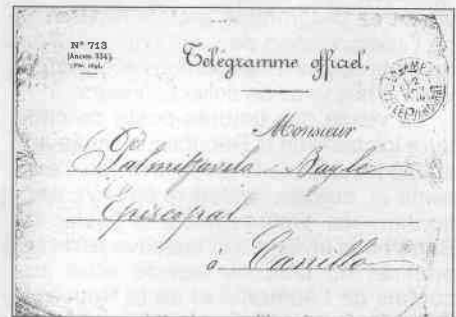 N° 713
(Ancien 334).
Télégramme officiel.
Monsieur
Palmitjavila Bayle
Episcopal
à Canillo